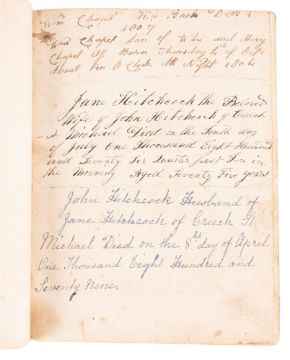 Wm Chapel His Book Decr 5
1807
Wm Chapel Son of Wm and Mary
Chapel Was Born Thursday of Octr
About ten O Clock At Night 1804
Jane Hitchcock the Beloved
Wife of John Hitchcock of Creech
St Michael Died on the Tenth day
of July One Thousand Eight Hundred
and Seventy Six Quarter past Ten in
the Morning Aged Seventy Five years
John Hitchcock Husband of
Jane Hitchcock of Creech St.
Michael Died on the 8th day of April
One Thousand Eight Hundred and
Seventy Nine.